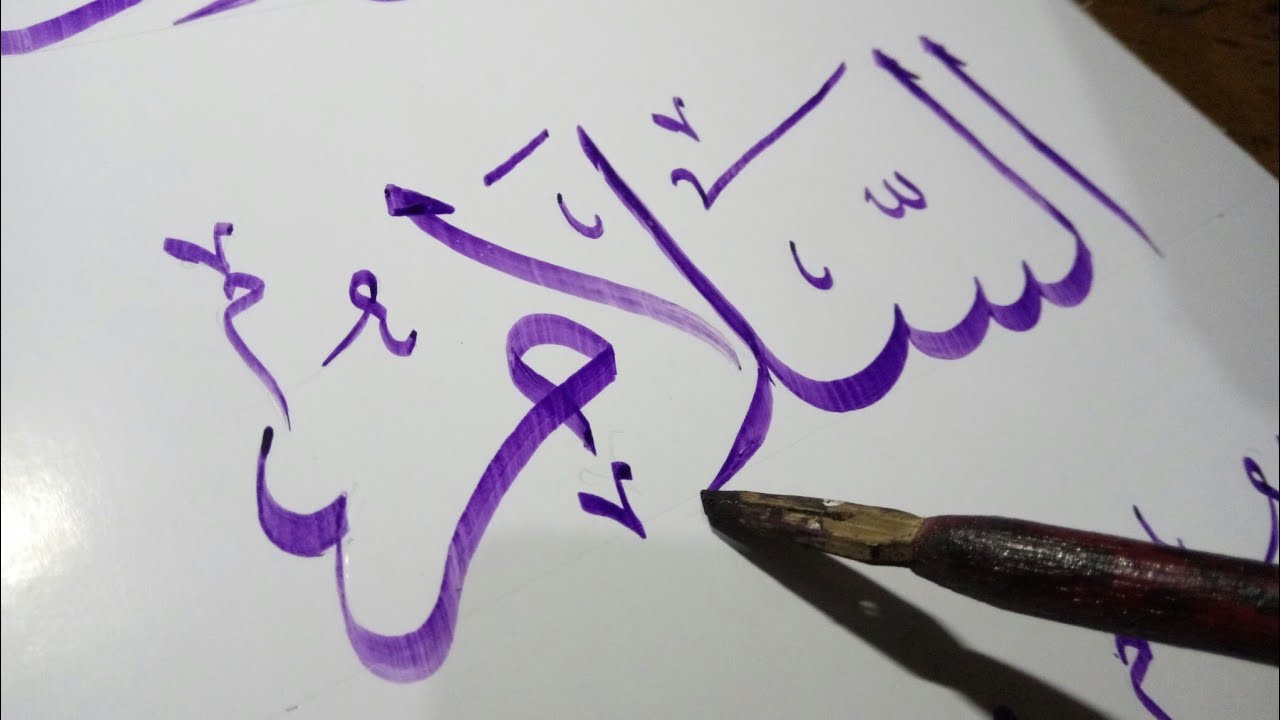 السَّلَامُ